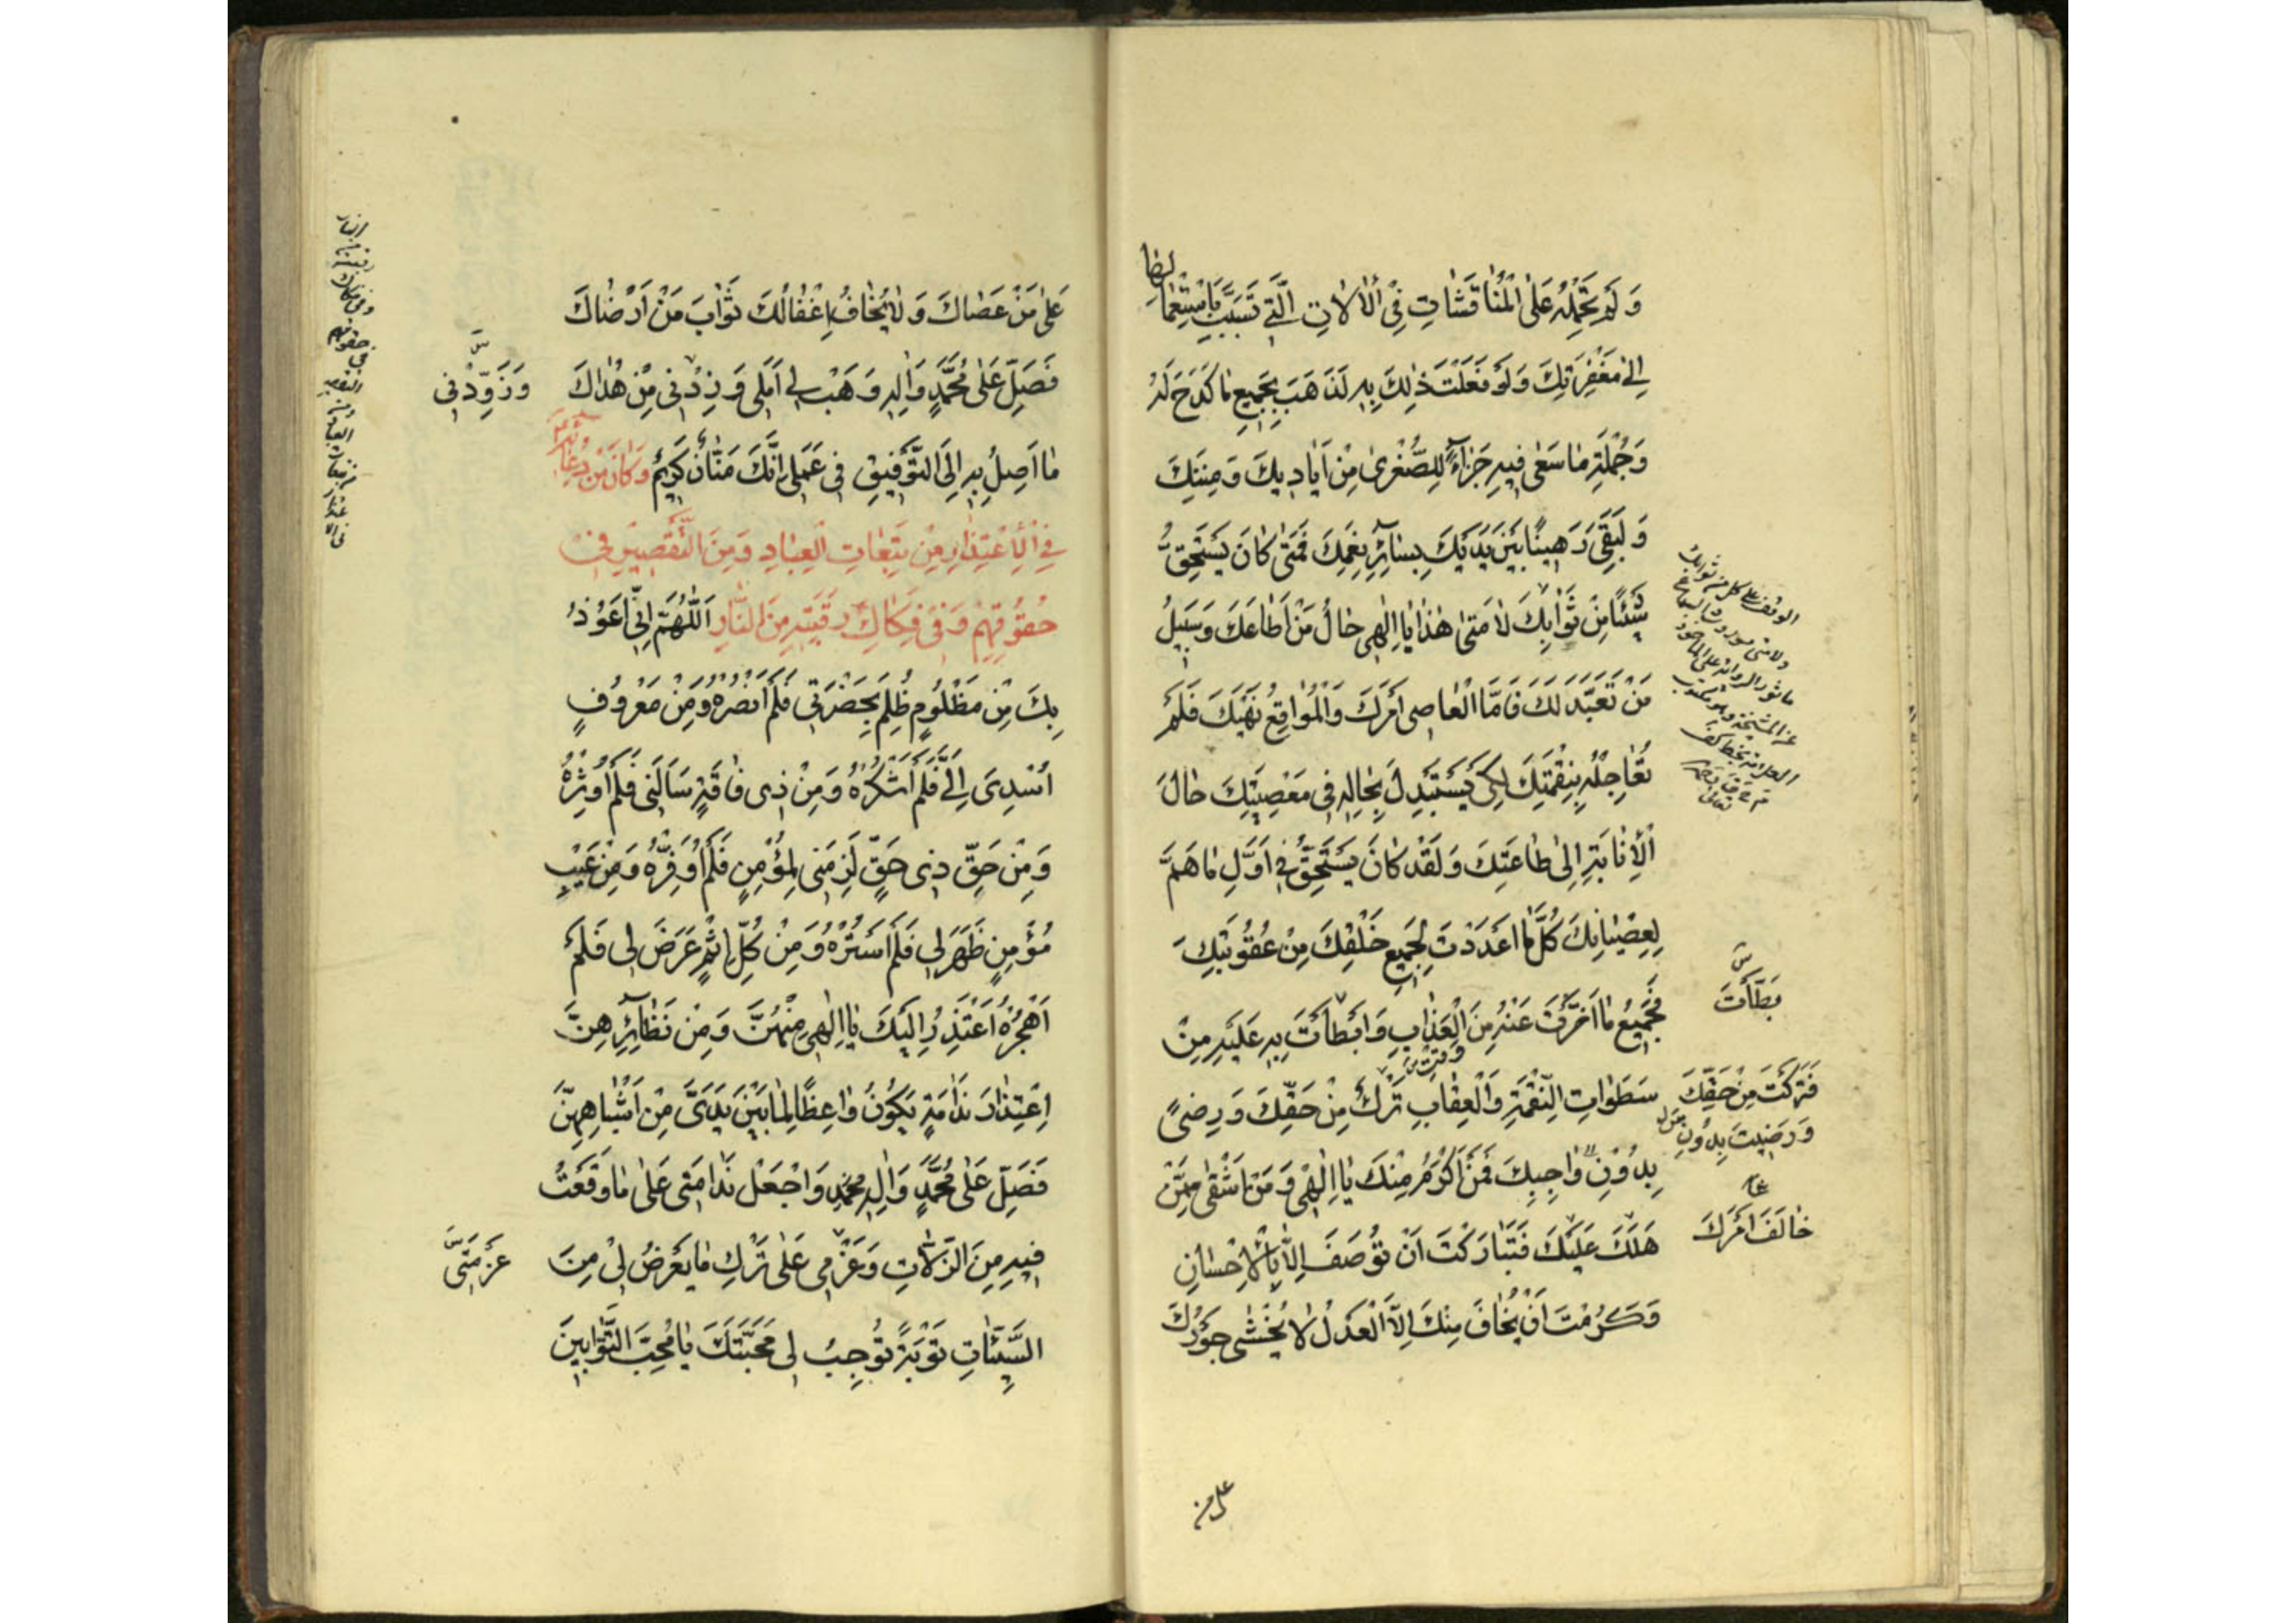 وَلَمْ تَحْمِلْهُ عَلَى الْمُنَاقَشَاتِ فِي الْآلَاتِ الَّتِي تَسَبَّبَ بِاسْتِعْمَالِهَا
إِلَىٰ مَغْفِرَتِكَ وَلَوْ فَعَلْتَ ذٰلِكَ بِهِ لَذَهَبَ بِجَمِيعِ مَا كَدَحَ لَهُ
وَجُمْلَةِ مَا سَعَىٰ فِيهِ جَزَاءً لِلصُّغْرَىٰ مِنْ أَيَادِيكَ وَمِنَنِكَ
وَلَبَقِيَ رَهِينًا بَيْنَ يَدَيْكَ بِسَائِرِ نِعَمِكَ فَمَتَىٰ كَانَ يَسْتَحِقُّ
شَيْئًا مِنْ ثَوَابِكَ لَا مَتَىٰ هٰذَا يَا إِلٰهِي حَالُ مَنْ أَطَاعَكَ وَسَبِيلُ
مَنْ تَعَبَّدَ لَكَ فَأَمَّا الْعَاصِي أَمْرَكَ وَالْمُوَاقِعُ نَهْيَكَ فَلَمْ
تُعَاجِلْهُ بِنِقْمَتِكَ لِكَيْ يَسْتَبْدِلَ بِحَالِهِ فِي مَعْصِيَتِكَ حَالَ
الْإِنَابَةِ إِلَىٰ طَاعَتِكَ وَلَقَدْ كَانَ يَسْتَحِقُّ فِي أَوَّلِ مَا هَمَّ
بِعِصْيَانِكَ كُلَّ مَا أَعْدَدْتَ لِجَمِيعِ خَلْقِكَ مِنْ عُقُوبَتِكَ
فَجَمِيعُ مَا أَخَّرْتَ عَنْهُ مِنَ الْعَذَابِ وَأَبْطَأْتَ بِهِ عَلَيْهِ مِنْ
سَطَوَاتِ النِّقْمَةِ وَالْعِقَابِ تَرْكٌ مِنْ حَقِّكَ وَرِضًى
بِدُونِ وَاجِبِكَ فَمَنْ أَكْرَمُ مِنْكَ يَا إِلٰهِي وَمَنْ أَشْقَىٰ مِمَّنْ
هَلَكَ عَلَيْكَ فَتَبَارَكْتَ أَنْ تُوصَفَ إِلَّا بِالْإِحْسَانِ
وَكَرُمْتَ أَنْ يُخَافَ مِنْكَ إِلَّا الْعَدْلُ لَا يُخْشَىٰ جَوْرُكَ
بَطَّأْتَ
فَتَرَكْتَ مِنْ حَقِّكَ
وَرَضِيتَ بِدُونِ
خَالَفَ أَمْرَكَ
على من
عَلَىٰ مَنْ عَصَاكَ وَلَا يُخَافُ إِغْفَالُكَ ثَوَابَ مَنْ أَرْضَاكَ
فَصَلِّ عَلَىٰ مُحَمَّدٍ وَآلِهِ وَهَبْ لِي أَمَلِي وَزِدْنِي مِنْ هُدَاكَ
وَزَوِّدْنِي
مَا أَصِلُ بِهِ إِلَى التَّوْفِيقِ فِي عَمَلِي إِنَّكَ مَنَّانٌ كَرِيمٌ وَكَانَ مِنْ دُعَائِهِ
فِي الْاِعْتِذَارِ مِنْ تَبِعَاتِ الْعِبَادِ وَمِنَ التَّقْصِيرِ فِي
حُقُوقِهِمْ وَفِي فَكَاكِ رَقَبَتِهِ مِنَ النَّارِ اَللّٰهُمَّ إِنِّي أَعُوذُ
بِكَ مِنْ مَظْلُومٍ ظُلِمَ بِحَضْرَتِي فَلَمْ أَنْصُرْهُ وَمِنْ مَعْرُوفٍ
أُسْدِيَ إِلَيَّ فَلَمْ أَشْكُرْهُ وَمِنْ ذِي فَاقَةٍ سَأَلَنِي فَلَمْ أُوثِرْهُ
وَمِنْ حَقِّ ذِي حَقٍّ لَزِمَنِي لِمُؤْمِنٍ فَلَمْ أُوَفِّرْهُ وَمِنْ عَيْبِ
مُؤْمِنٍ ظَهَرَ لِي فَلَمْ أَسْتُرْهُ وَمِنْ كُلِّ إِثْمٍ عَرَضَ لِي فَلَمْ
أَهْجُرْهُ أَعْتَذِرُ إِلَيْكَ يَا إِلٰهِي مِنْهُنَّ وَمِنْ نَظَائِرِهِنَّ
اِعْتِذَارَ نَدَامَةٍ يَكُونُ وَاعِظًا لِمَا بَيْنَ يَدَيَّ مِنْ أَشْبَاهِهِنَّ
فَصَلِّ عَلَىٰ مُحَمَّدٍ وَآلِهِ وَاجْعَلْ نَدَامَتِي عَلَىٰ مَا وَقَعْتُ
فِيهِ مِنَ الزَّلَّاتِ وَعَزْمِي عَلَىٰ تَرْكِ مَا يَعْرِضُ لِي مِنَ
عَزِيمَتِي
السَّيِّئَاتِ تَوْبَةً تُوجِبُ لِي مَحَبَّتَكَ يَا مُحِبَّ التَّوَّابِينَ